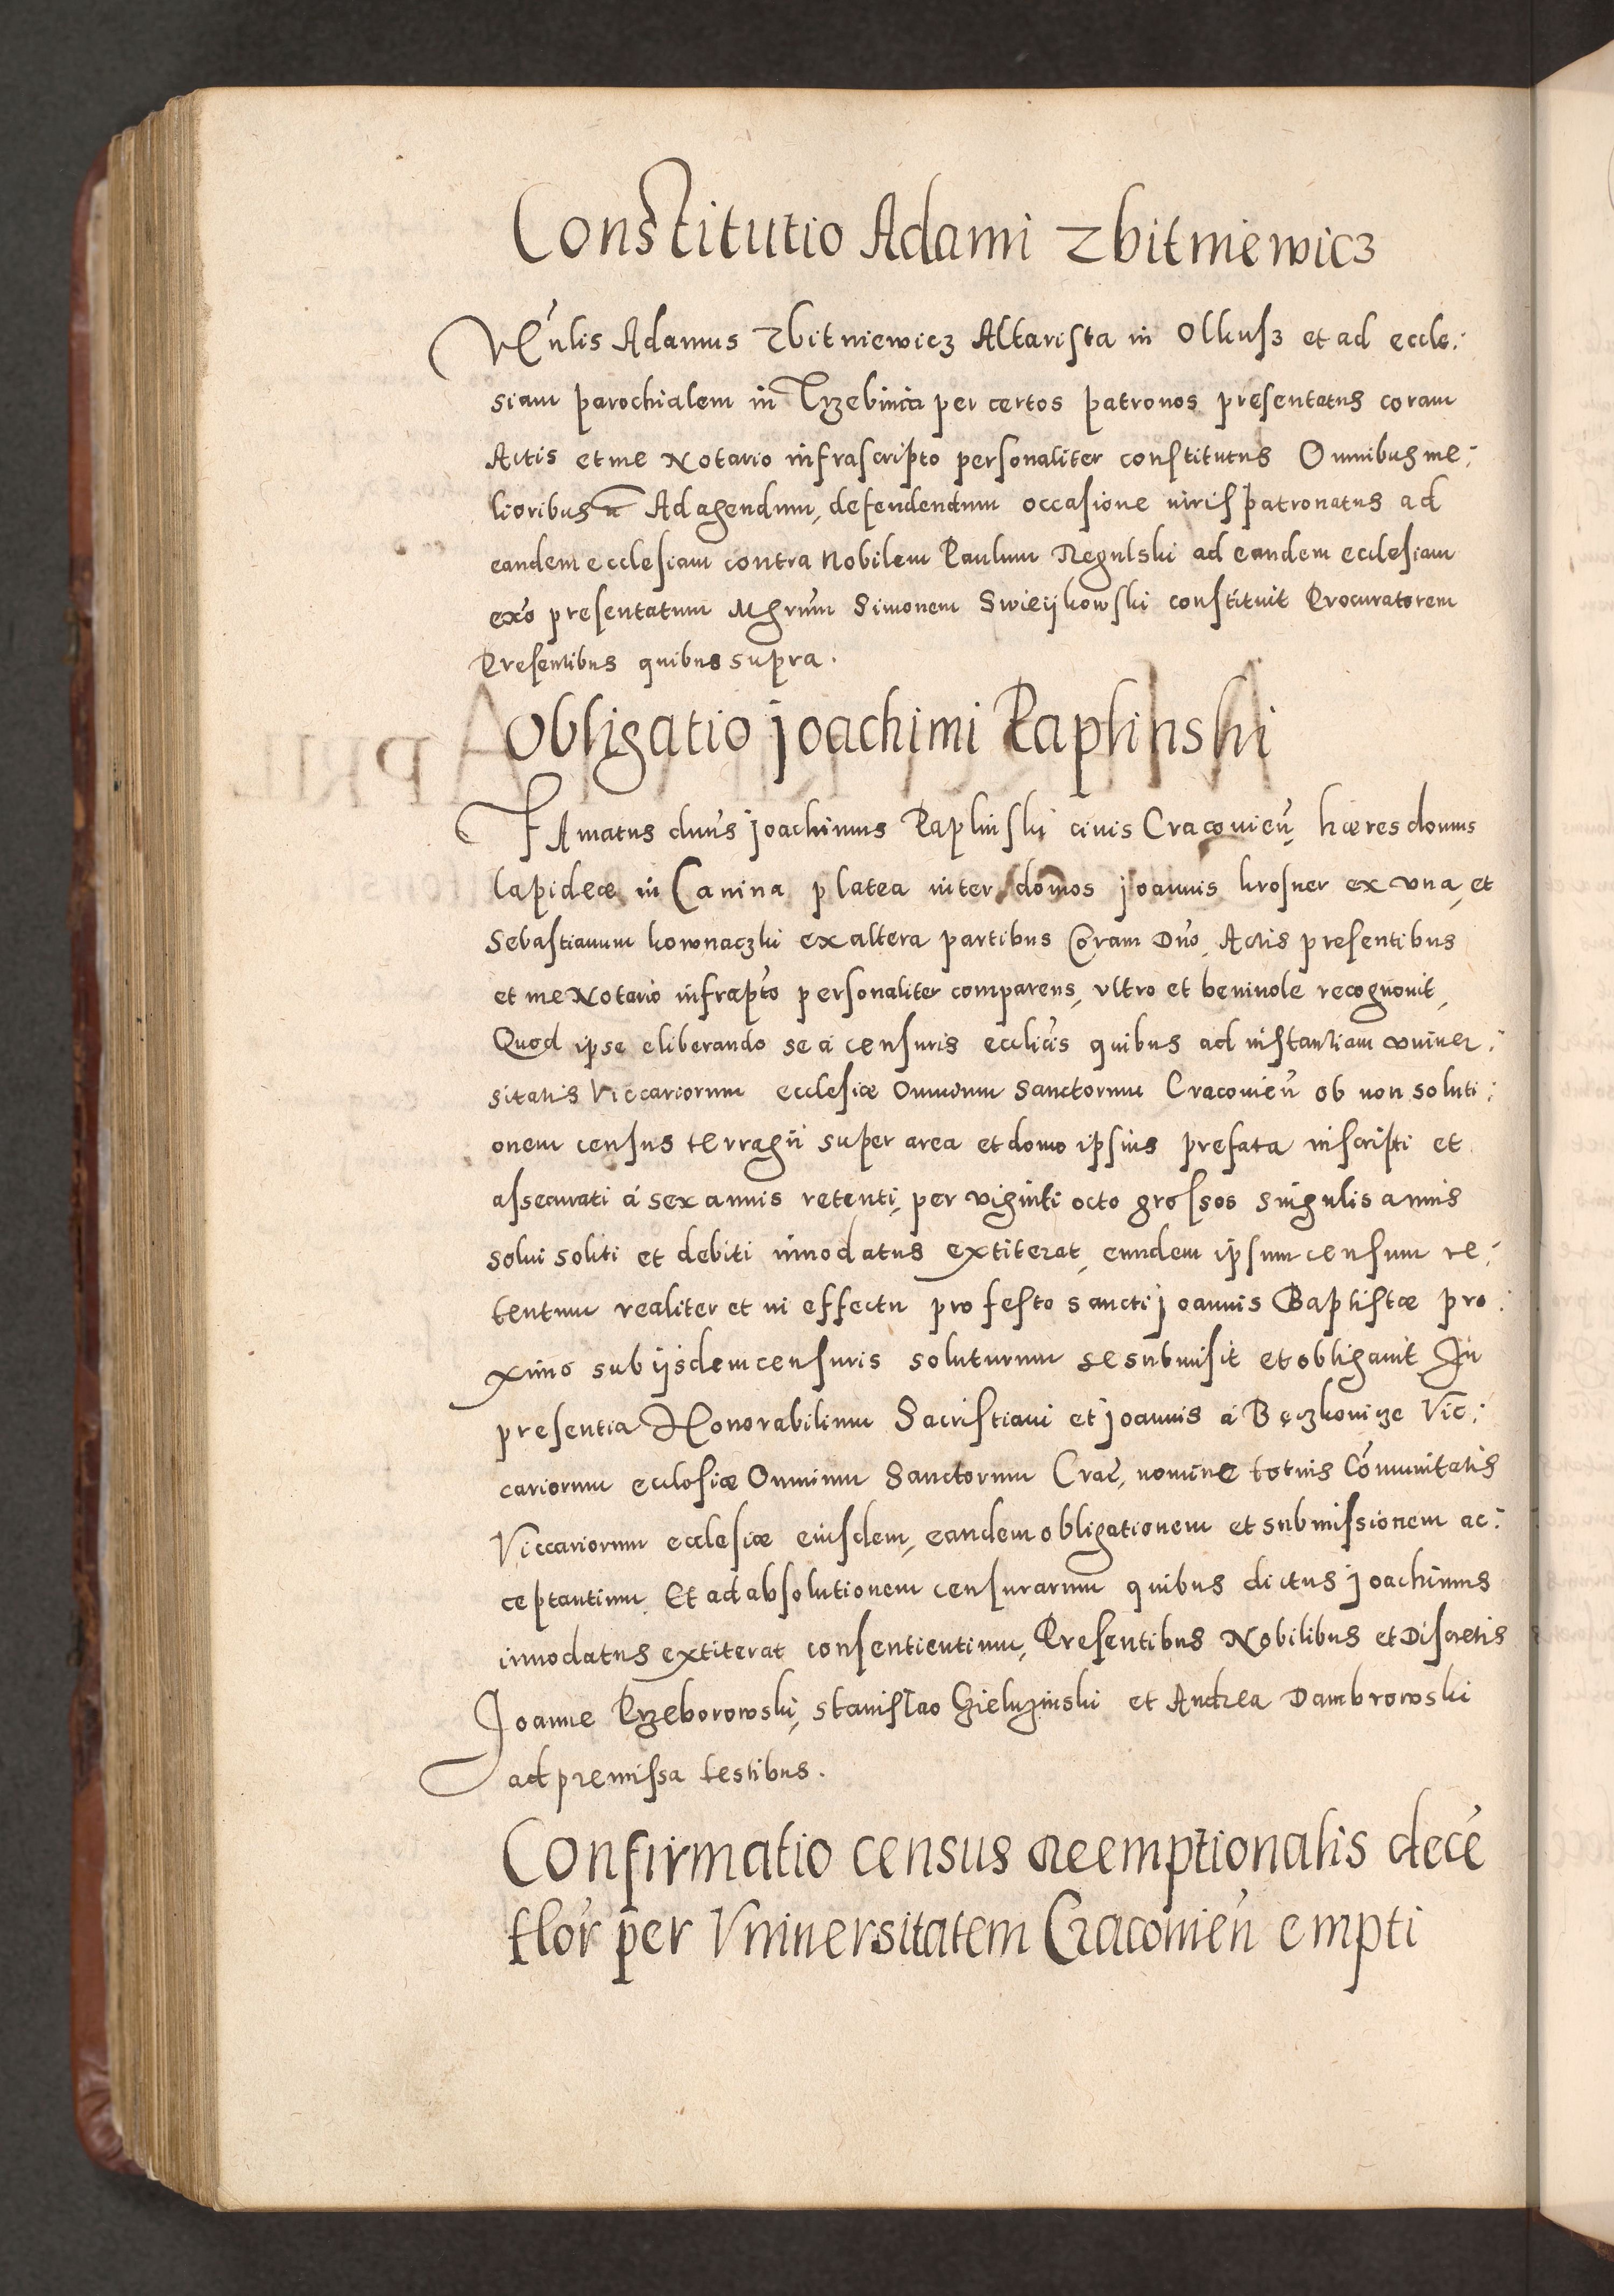 Constitutio Adami Zbitniewicz
Vēnlis Adamus Zbitniewicz Altarista in Olkusz et ad eccle:
siam parochialem in Trzebinia per certos patronos presentatus coram
Actis et me Notario infrascripto personaliter constitutus Omnibus me:
lioribus Ad agendum, defendendum occasione iuris patronatus ad
eandem ecclesiam contra Nobilem Paulum Regulski ad eandem ecclesiam
exo presentatum Mgrum Simonem Swieijkowski constituit Procuratorem
Presentibus quibus supra.
Obligatio Joachimi Raplinski
FAmatus dnus Joachimus Raplinski ciuis Cracouień, hæres domus
lapideæ in Canina platea inter domos Joannis krosner ex vna, et
Sebastianum kownaczki ex altera partibus Coram Dno, Actis presentibus
et me Notario infrapto personaliter comparens, vltro et beniuole recognouit,
Quod ipse eliberando se a censuris eccliacis quibus ad instantiam vniuer:
sitatis Viccariorum ecclesiæ Omnium Sanctorum Cracouień ob non soluti:
onem census terragii super area et domo ipsius prefata inscripti et
assecurati á sex annis retenti, per viginti octo grossos singulis annis
solui soliti et debiti innodatus extiterat, eundem ipsum censum re:
tentum realiter et in effectu pro festo sancti Joannis Baptistæ pro:
ximo sub ijsdem censuris soluturum se submisit et obligauit In
presentia Honorabilium Sacristiani et Joannis á Bęczkowize Vic:
cariorum ecclesiæ Omnium Sanctorum Crac, nomine totius Cōmunitatis
Viccariorum ecclesiæ eiusdem, eandem obligationem et submissionem ac:
ceptantium. Et ad absolutionem censurarum quibus dictus Joachimus
innodatus extiterat consentientium, Presentibus Nobilibus et Discretis
Joanne Przeborowski, Stanislao Gieluzinski et Andrea Dambrowski
ad premissa testibus.
Confirmatio census Reemptionalis decē
flor per Vniuersitatem Cracouień empti